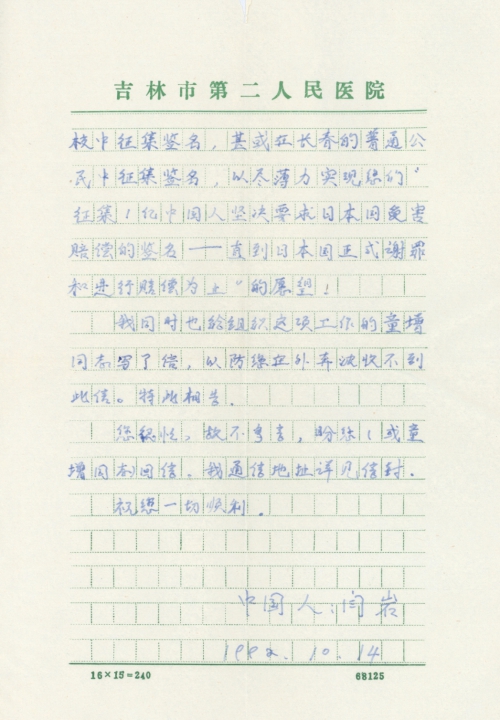 吉林市第二人民医院
校中征集签名，甚或在长春的普通公
民中征集签名，以尽薄力实现您的"
征集1亿中国人坚决要求日本国受害
赔偿的签名——直到日本国正式谢罪
和进行赔偿为止"的展望！
我同时也给组织这项工作的童增
同志写了信，以防您在外奔波收不到
此信。特此相告.
您很忙，故不多言，盼您（或童
增同志回信.我通信地址详见信封.
祝您一切顺利.
中国人：闫岩
1992.10.14
16×15=240
68125